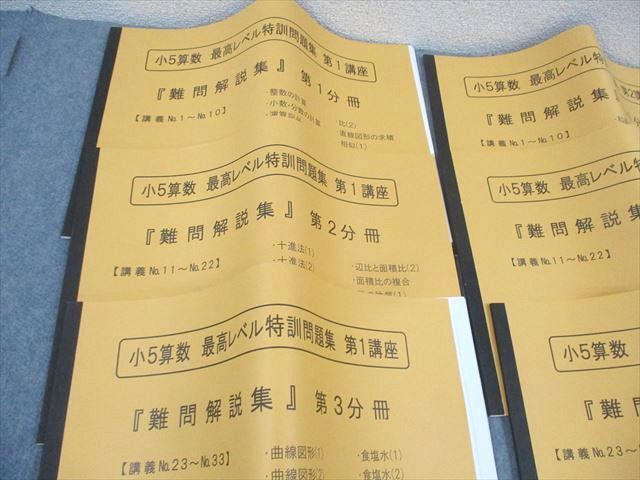 小5算数 最高レベル特訓問題集 第1講座
『難問解説集』 第1分冊
【講義No.1～No.10】
・整数の計算
・小数・分数の計算
・比(2)
・直線図形の求積
・相似(1)
小5算数 最高レベル特訓問題集 第1講座
『難問解説集』 第2分冊
【講義No.11～No.22】
・十進法(1)
・十進法(2)
・辺比と面積比(2)
・面積比の複合
小5算数 最高レベル特訓問題集 第1講座
『難問解説集』 第3分冊
【講義No.23～No.33】
・曲線図形(1)
・曲線図形(2)
・食塩水(1)
・食塩水(2)
小5算数 最高レベル特
第2
『難問解説集
【講義No.1～No.10】
小5算数 最高レベル特
『難問解説集
【講義No.11～No.22】
小5算数
『難
【講義No.2